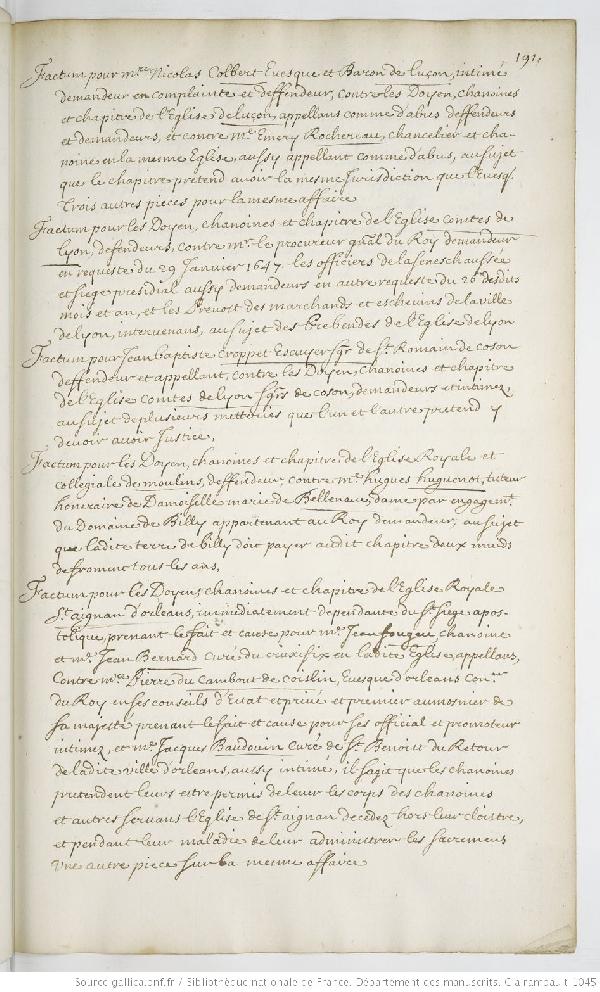 191.
Factum pour m.re Nicolas Colbert Euesque et Baron de luçon, intimé
demandeur en complainte et deffendeur, Contre les Doyen, chanoines
et chapitre de l'Eglise de luçon, appellans comme d'abus deffendeurs
et demandeurs, et contre m.e Emery Rochereau, chancelier et cha-
noine en la mesme Eglise, aussy appellant comme d'abus, au sujet
que le chapitre pretend auoir la mesme Jurisdiction que l'Euesq.
Trois autres pieces pour la mesme affaire
Factum pour les Doyen, chanoines et chapitre de l'Eglise comtes de
Lyon, defendeurs, contre m.r le procureur gnãl du Roy demandeur
en requeste du 29 Januier 1647. les officiers de la seneschaussée
et siege presidial aussy demandeurs en autre requeste du 26 desdits
mois et an, et les Preuost des marchands et escheuins de la ville
de lyon, interuenans, au sujet des Prebendes de l'Eglise de lyon
Factum pour Jean baptiste Croppet Escuyer sgr. de St. Romain de coson
deffendeur et appellant, contre les Doyen, Chanoines et chapitre
de l'Eglise Comtes de lyon sgrs de coson, demandeurs et intimez,
au sujet de plusieurs que l'un et l'autre pretend y
deuoir auoir Justice,
Factum pour les Doyen, chanoines et chapitre de l'Eglise Royale et
collegiale de moulins, deffendeur, contre m.e hugues huguenot, tuteur
honoraire de Damoiselle marie de Bellenaue, dame par engagemt.
du Domaine de Billy appartenant au Roy demandeur, au sujet
que ladite terre de billy doit payer audit chapitre deux muids
de froment tous les ans,
Factum pour les Doyens chanoines et chapitre de l'Eglise Royale
St. aignan d'orleans, immediatement dependante du St. siege apos-
tolique, prenant le fait et cause pour m.e Jean fougeu, chanoine
et m.e Jean Bernard curé du crucifix en ladite Eglise, appellans,
Contre m.re Pierre du Cambout de Coislin, Euesque d'orleans con.er
du Roy en ses conseils d'Estat et priué et premier aumosnier de
sa majesté prenant le fait et cause pour ses official et promoteur
intimez, et m.e Jacques Baudouin Curé de St. Benoist du Retour
de ladite ville d'orleans, aussy intimé, il s'agit que les chanoines
pretendent leurs estre permis de leuer les corps des chanoines
et autres seruans l'Eglise de St. aignan decedez hors leur cloistre,
et pendant leur maladie de leur administrer les sacremens
Vne autre piece sur la mesme affaire
Source gallica.bnf.fr / Bibliothèque nationale de France. Département des manuscrits. Clairambault 1045